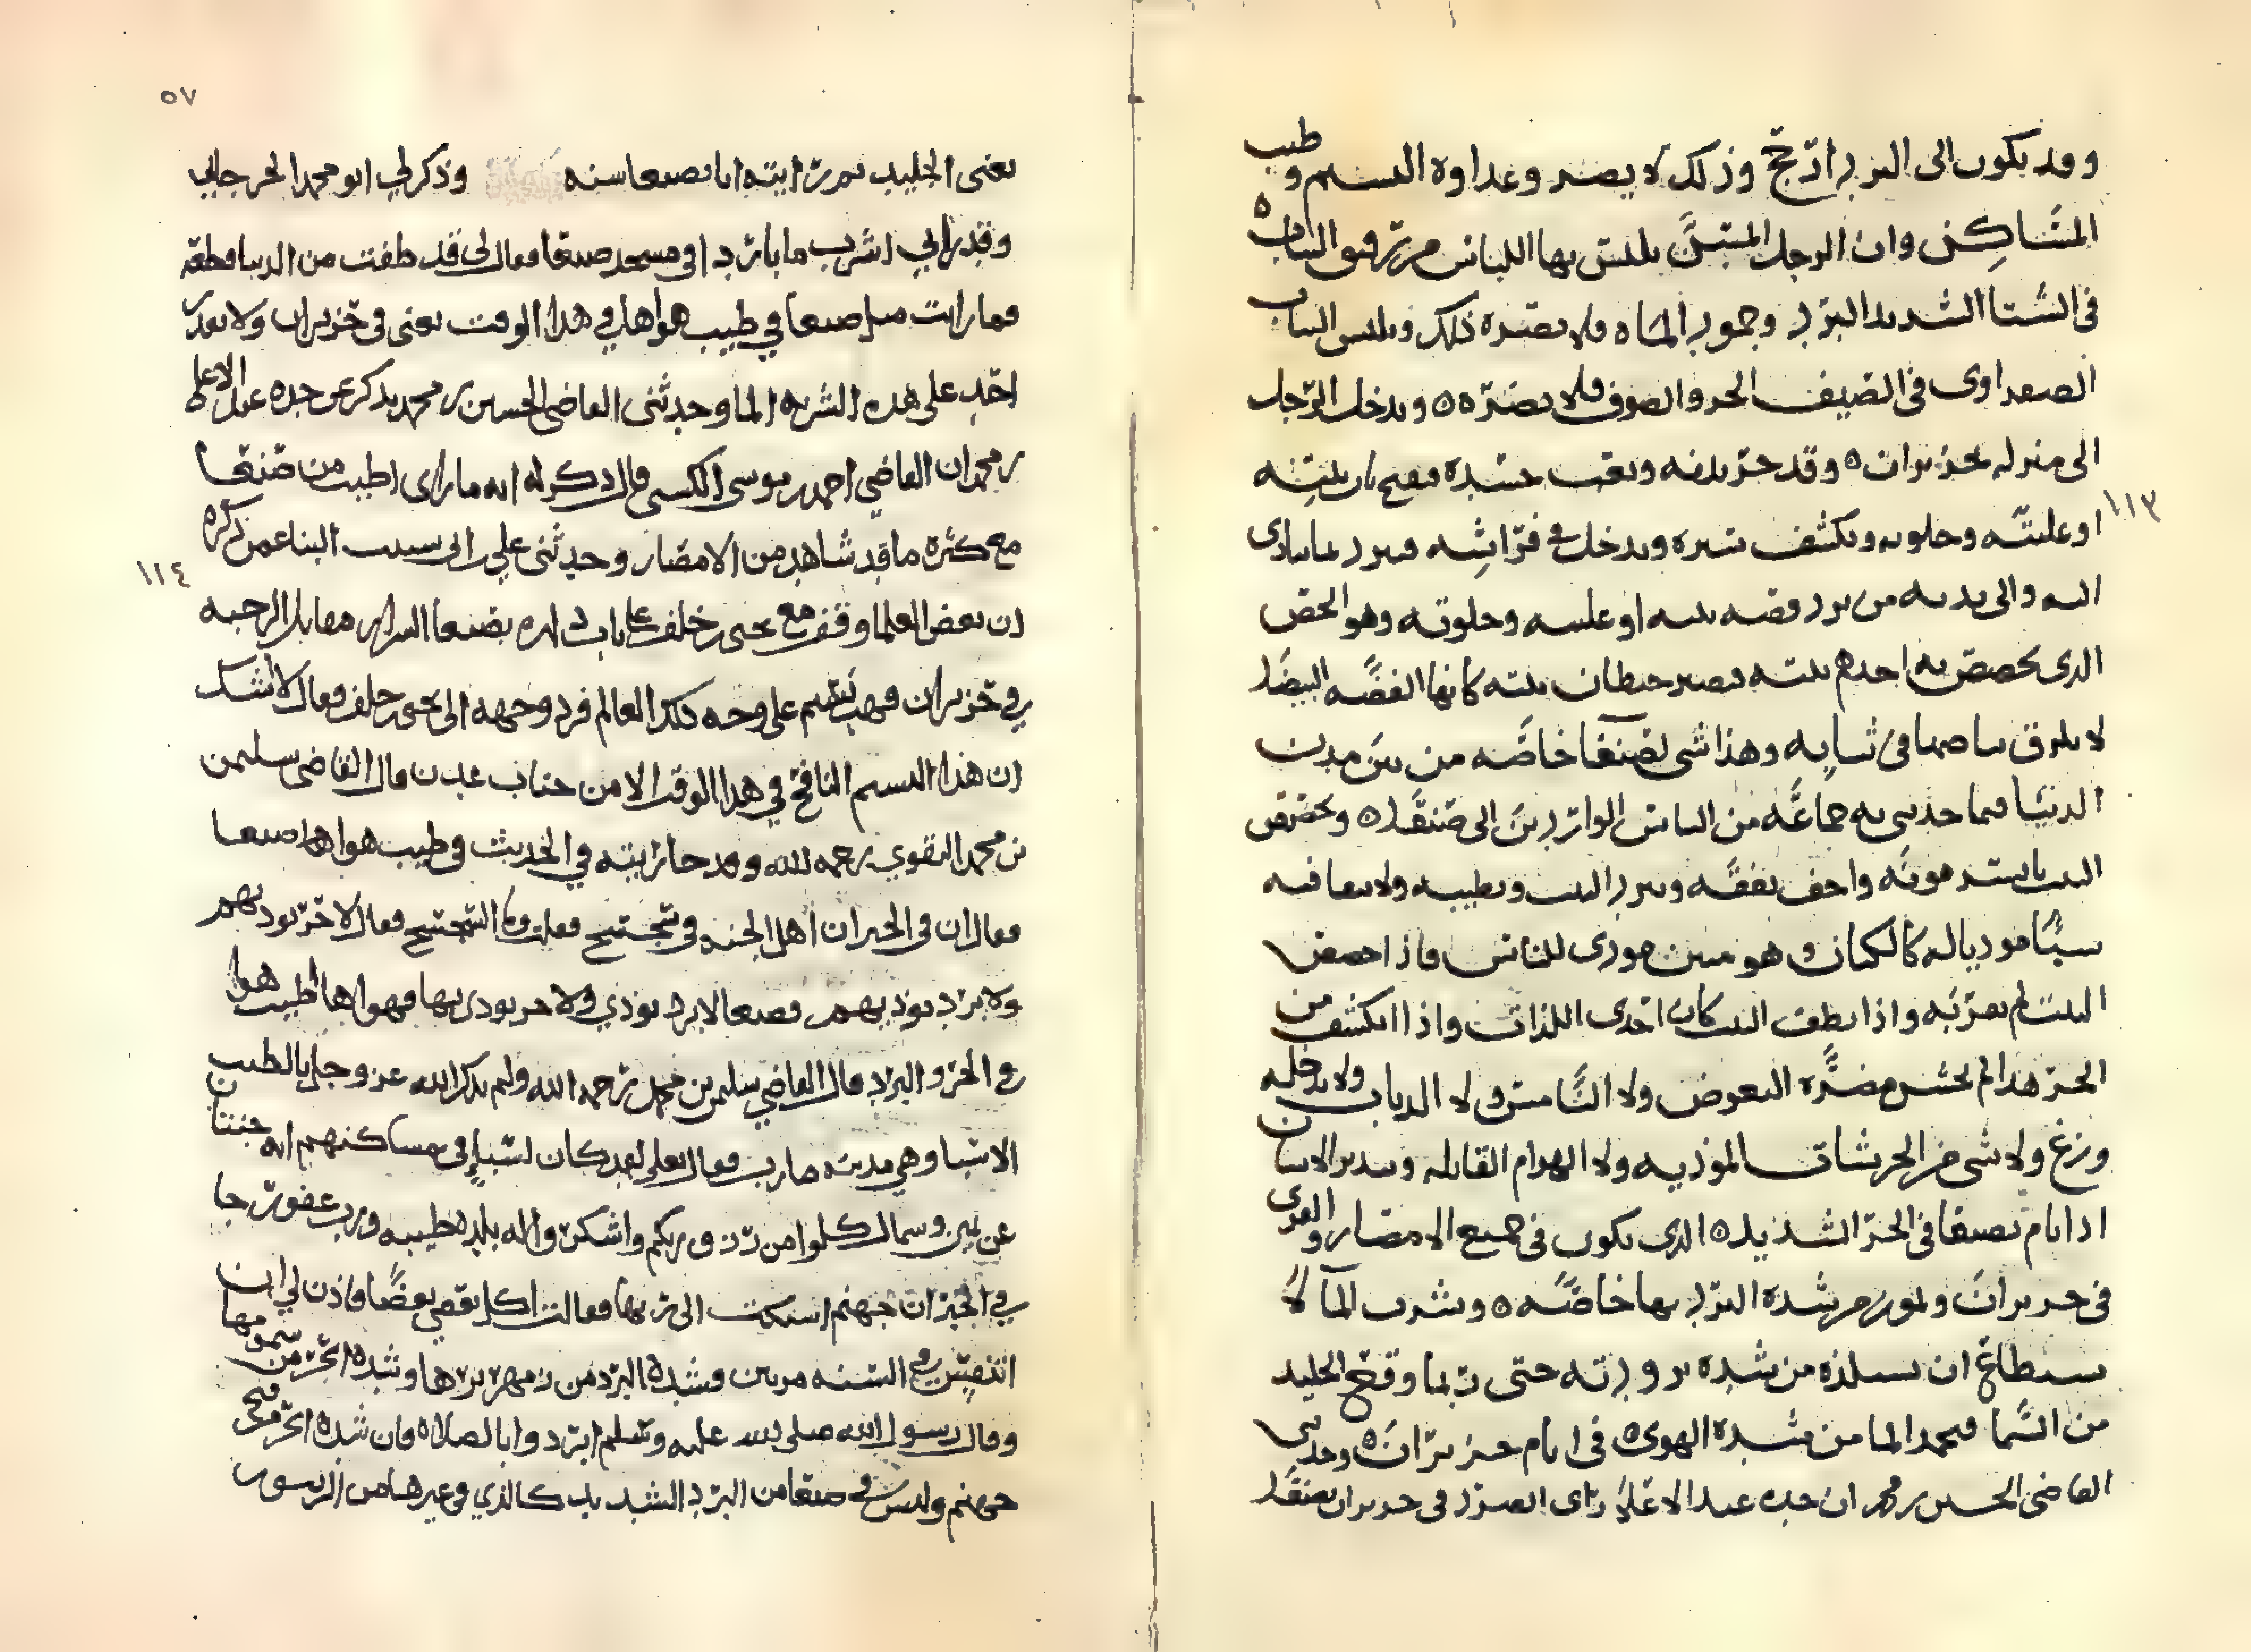 وقد يكون الى البرد ارجح وذلك لا يضر وعداوه النسيم وطيب
المساكن وان الرجل المسن يلبس بها اللباس من رقيق الثياب
في الشتا الشديد البرد وجمود الماه فلا يضره ذلك ويلبس الثياب
في الصيف الحر والصوف فلا يضره ويدخل الرجل
الى منزله بحزيران وقد حر بدنه وتعب جسده فيفتح باب بيته
او عليته وخلوته ويكشف ستره ويدخل في فراشه فيبرد
اليه والى يديه من برد قصه بيته او عليته وخلوته وهو الجص
الذي يجصص به احدهم بيته فتصير حيطان بيته كانها الفضه البيضا
لا يلزق بياضها في ثيابه وهذا شي لصنعا خاصه من بين مدن
الدنيا فيما حدثني به جماعه من الناس الواردين الى صنعا وتجصيص
البيت ايسر مونه واخف نفقه ويبرد البيت ويطيبه ولا
كالكتان وهو موذى للناس فاذا جصص
البيت لم يضر به واذا نظف البيت كان احدى اللذات واذا انكشف من
الحر هذا لم يخش مضره البعوض ولا النامس ولا الذباب ولا يدخله
وزغ ولا شي من الحرشات الموذيه ولا الهوام القاتله الانسان
اذا نام بصنعا في الحر الشديد الذي يكون في جميع الامصار والقرى
في حزيران وتموز من شدة البرد بها خاصه وشرب الما لا
يستطاع ان يستلذه من شدة برودته حتى ربما وقع الجليد
من السما فيجمد الما من شدة الهوى في ايام حزيران وحدثني
القاضي الحسين بن محمد ان جده عبد الاعلا راى الصرد في حزيران بصنعا
١١٣
٥٧
يعنى الجليد ثم رايته انا بصنعا سنه وذكر لي ابو محمد الجرجاني
وقد راني اشرب ما باردا في مسجد صنعا فقال لي قد طفت من الدنيا قطعه
فما رايت مثل صنعا في طيب هواها في هذا الوقت يعنى في حزيران ولا يقدر
احد على هذه الشربه الما وحدثنى القاضي الحسين بن محمد يذكر عن جده عبد الاعلى
بن محمد ان القاضي احمد بن موسى الكسى قال ذكر له انه ما راى اطيب من صنعا
مع كثره ما قد شاهد من الامصار وحدثنى علي بن ابى سبب البنا عمن ذكره
ان بعض العلما وقف مع يحيى بن خلف على باب داره بصنعا السرار مقابل الرحبه
في حزيران فهب نسيم على وجه ذلك العالم فرد وجهه الى يحيى بن خلف فقال لا شك
ان هذا النسيم النافح في هذا الوقت الا من جنات عدن قال القاضى سليمن
بن محمد النقوي رحمه الله وقد جا رايته في الحديث في طيب هواها صنعا
فقال ان في الخبر ان اهل الجنه في سجسج فقلت وما السجسج فقال لا حر يوذيهم
ولا برد يوذيهم فصنعا لا برد يوذي ولا حر يوذى بها فهواها اطيب هوا
في الحر والبرد قال القاضي سليمن بن محمد رحمه الله ولم يذكر الله عز وجل بالطيب
الا سبا وهي مدينه مارب فقال تعلى لقد كان لسبإ في مساكنهم ايه جنتان
عن يمين وسمال كلوا من رزق ربكم واشكروا له بلده طيبه ورب غفور جا
في الخبر ان جهنم اشتكت الى ربها فقالت اكل بعضي بعضا فاذن لي ان
اتنفس في السنه مرتين فشدة البرد من زمهريرها وشدة الحر من سمومها
وقال رسول الله صلى الله عليه وسلم ابردوا بالصلاه فان شدة الحر من فيح
جهنم وليس في صنعا من البرد الشديد كالذي في غيرها من
١١٤